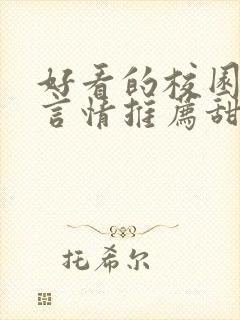 好看的校园
言情推荐甜
托希尔